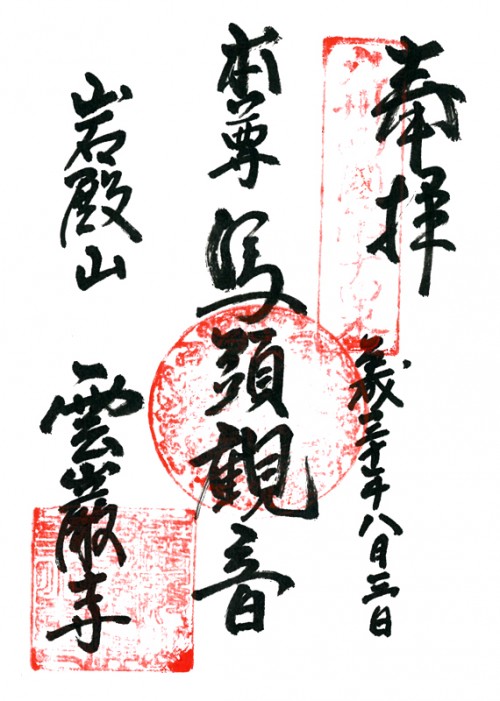 奉拝
平成三十年八月三日
本尊 馬頭観音
岩殿山 雲巌寺